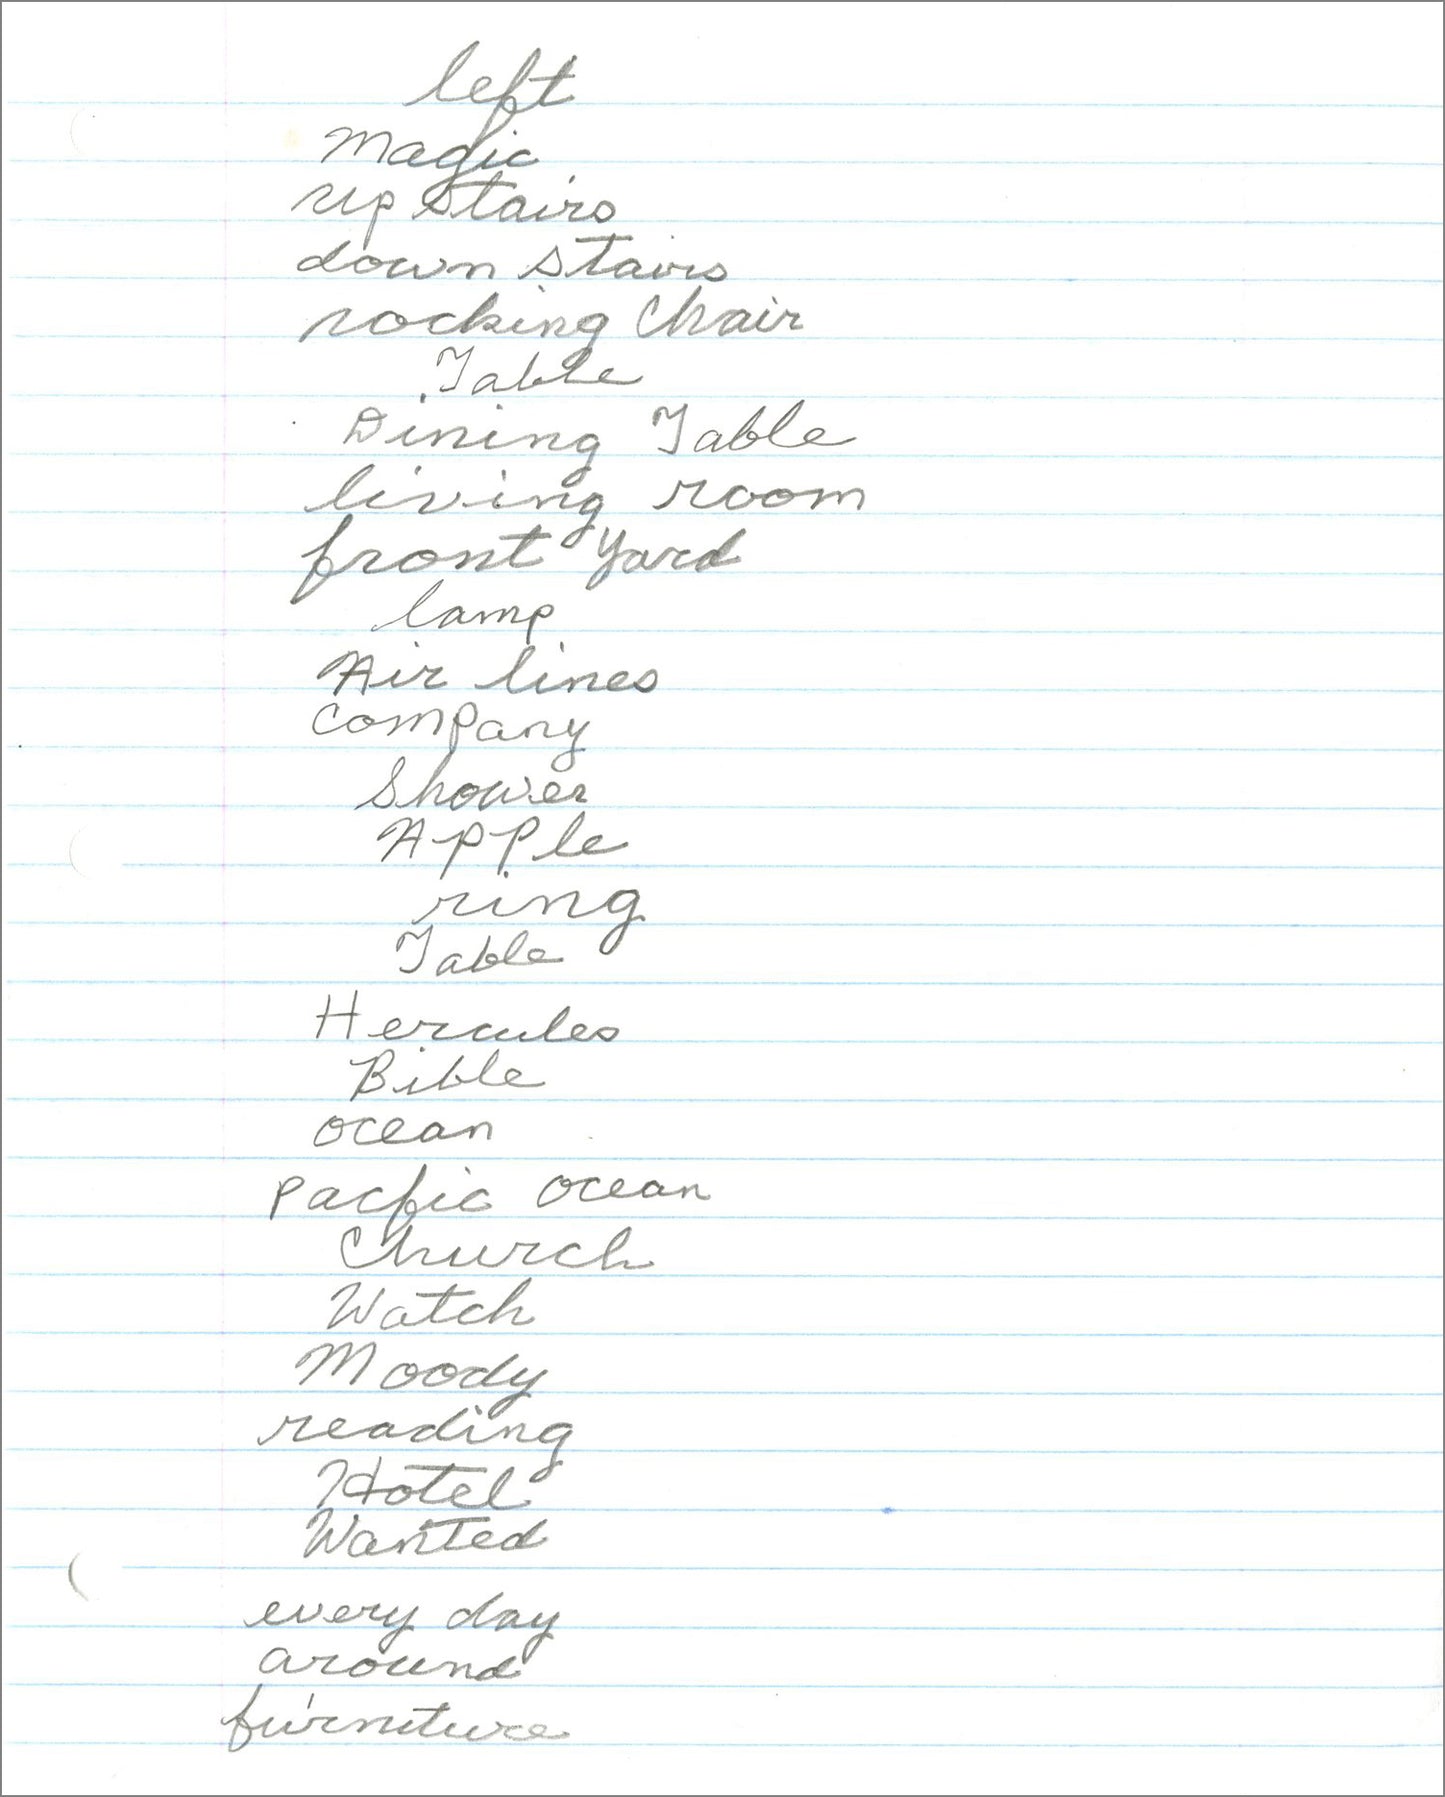 left
Magic
up stairs
down stairs
rocking Chair
Table
Dining Table
living room
front yard
lamp
Air lines
Company
Shower
Apple
ring
Table
Hercules
Bible
ocean
pacfic ocean
Church
Watch
Moody
reading
Hotel
Wanted
every day
around
furniture